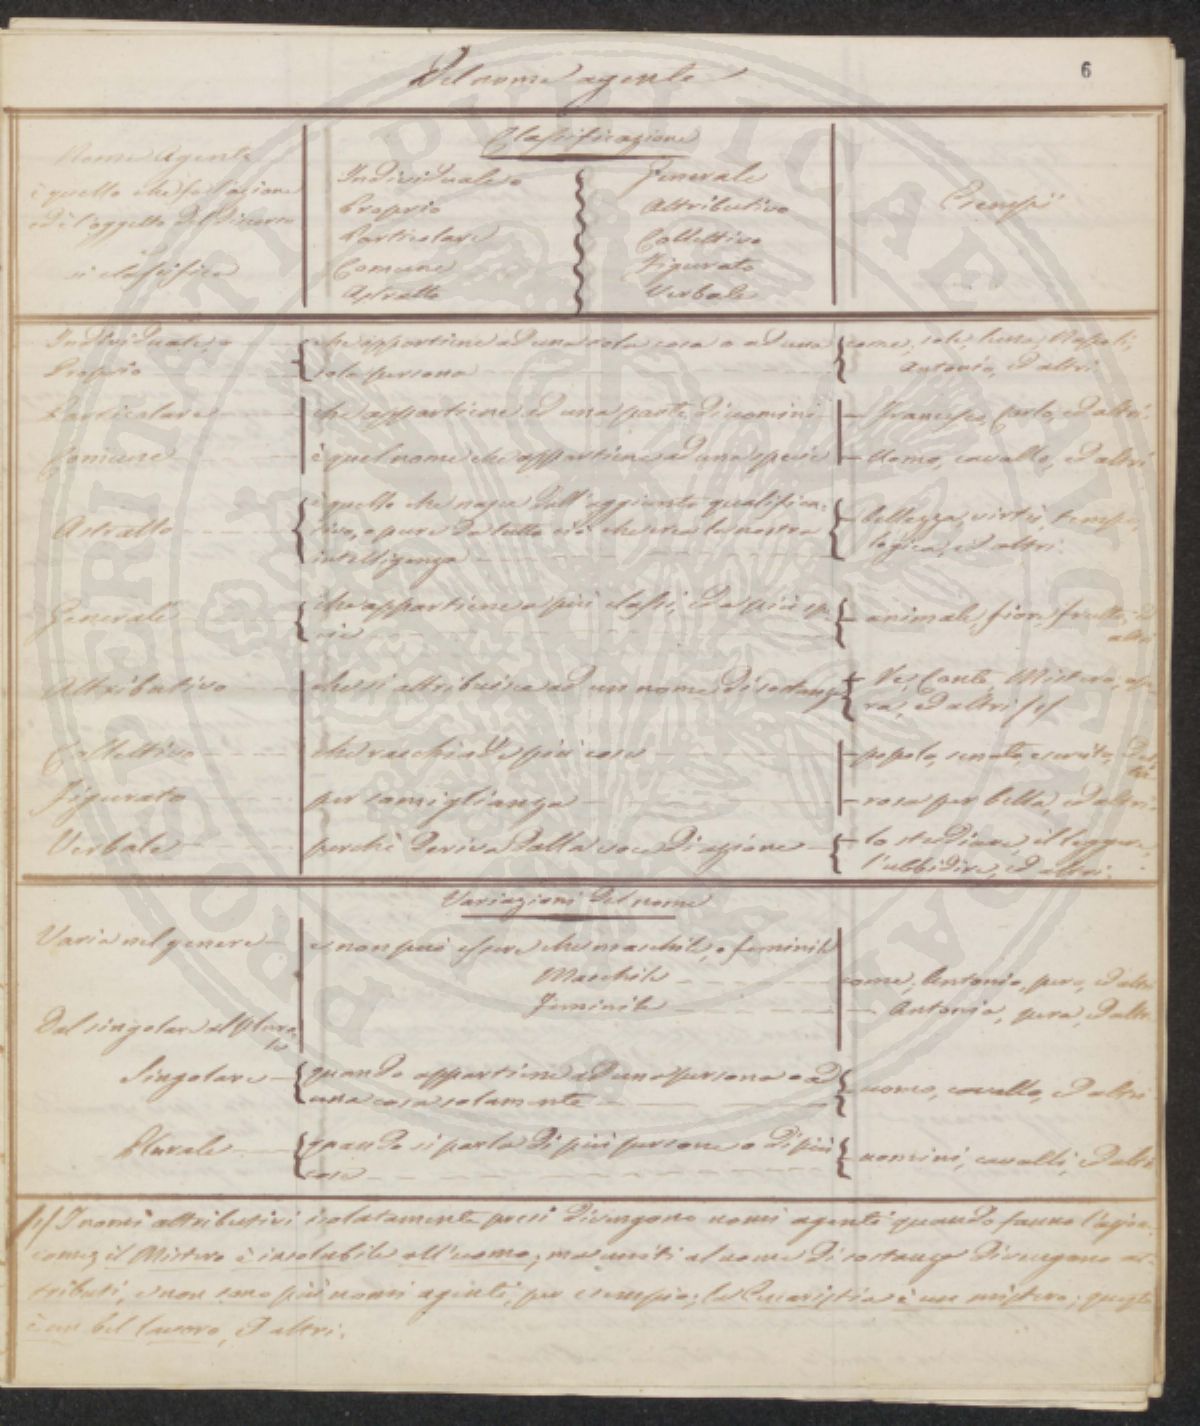 Del nome agente
6
Nome Agente
è quello che fa l'azione
ed è l'oggetto del discorso
si classifica
Classificazione
Individuale o
Proprio
Particolare
Comune
Astratto
Generale
Attributivo
Collettivo
Figurato
Verbale
Esempii
Individuale, o
Proprio
che appartiene ad una sola cosa o ad una
sola persona
come, sole, luna, Napoli,
Antonio, ed altri
Particolare
che appartiene ad una parte di uomini
Francesco, Carlo, ed altri
Comune
è quel nome che appartiene ad una specie
Uomo, cavallo, ed altri
Astratto
è quello che nasce dall'aggiunto qualifica-
tivo, o pure da tutto ciò che crea la nostra
intelligenza
bellezza, virtù, tempo,
logica, ed altri
Generale
che appartiene a più classi, ed a più spe-
cie
animale, fiore, frutto, ed
altri
Attributivo
che si attribuisce ad un nome di sostanza
Re, Conte, Mistero, ope-
ra, ed altri (1)
Collettivo
che racchiude più cose
popolo, senato, esercito, ed al-
tri
Figurato
per somiglianza
rosa per bella, ed altri
Verbale
perchè deriva dalla voce di azione
lo studiare, il leggere,
l'ubbidire, ed altri.
Variazioni del nome
Varia nel genere
e non può essere che maschile, o feminile
Maschile
come, Antonio, pero, ed altri
Feminile
Antonia, pera, ed altri
Dal singolare al plura-
le
Singolare
quando appartiene ad una persona o ad
una cosa solamente
uomo, cavallo, ed altri
Plurale
quando si parla di più persone o di più
cose
uomini, cavalli, ed altri
(1) I nomi attributivi isolatamente presi divengono nomi agenti quando fanno l'azione
come, il Mistero è insolubile all'uomo; ma uniti al nome di sostanza divengono at-
tributi, e non sono più nomi agenti, per esempio; la Eucaristia è un mistero; questo
è un bel lavoro, ed altri.